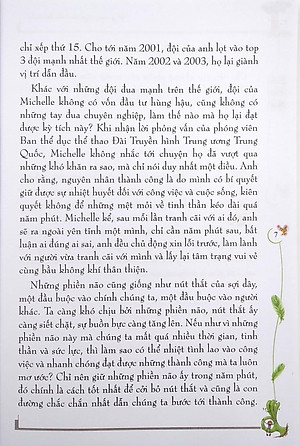 chỉ xếp thứ 15. Cho tới năm 2001, đội của anh lọt vào top
3 đội mạnh nhất thế giới. Năm 2002 và 2003, họ lại giành
vị trí dẫn đầu.
Khác với những đội đua mạnh trên thế giới, đội của
Michelle không có vốn đầu tư hàng hậu, cũng không có
những tay đua chuyên nghiệp, làm thế nào mà họ lại đạt
được kỳ tích này? Khi nhận lời phỏng vấn của phóng viên
Ban thể dục thể thao Đài Truyền hình Trung ương Trung
Quốc, Michelle không nhắc tới chuyện họ đã vượt qua
những khó khăn ra sao, mà chỉ nói duy nhất một điều. Anh
cho rằng, nguyên nhân thành công là do mình có bí quyết
giữ được sự nhiệt huyết đối với công việc và cuộc sống, kiên
quyết không để những mệt mỏi về tinh thần kéo dài quá
năm phút. Michelle kể, sau mỗi lần tranh cãi với ai đó, anh
sẽ ra ngoài yên tĩnh một mình, chỉ cần năm phút sau, bất
luận ai đúng ai sai, anh đều chủ động xin lỗi trước, làm lành
với người vừa tranh cãi với mình và lấy lại tâm trạng vui vẻ
cùng bầu không khí thân thiện.
Những phiền não cũng giống như nút thắt của sợi dây,
một đầu buộc vào chính chúng ta, một đầu buộc vào người
khác. Ta càng khó chịu bởi những phiền não, nút thắt ấy
càng siết chặt, sự buồn bực càng tăng lên. Nếu như vì những
phiền não này mà chúng ta mất quá nhiều thời gian, tinh
thần và sức lực, thì làm sao có thể nhiệt tình lao vào công
việc và nhanh chóng đạt được những thành công mà ta luôn
mơ ước? Chỉ nên giữ những phiền não ấy trong năm phút,
đó chính là cách tốt nhất để cởi bỏ nút thắt và cũng là con
đường chắc chắn nhất dẫn chúng ta bước tới thành công.
7